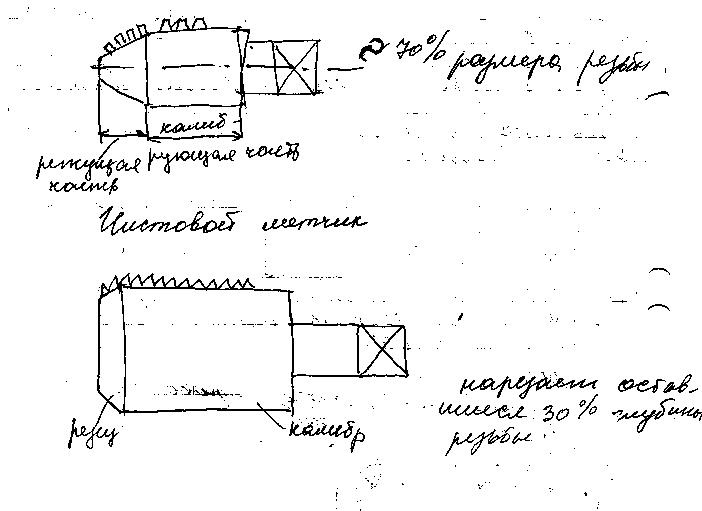 ~ 70% размера резьбы
калиб
режущая рующая часть
часть
Чистовой метчик
нарезает остав-
шиеся 30% глубины
резьбы
режу
калибр